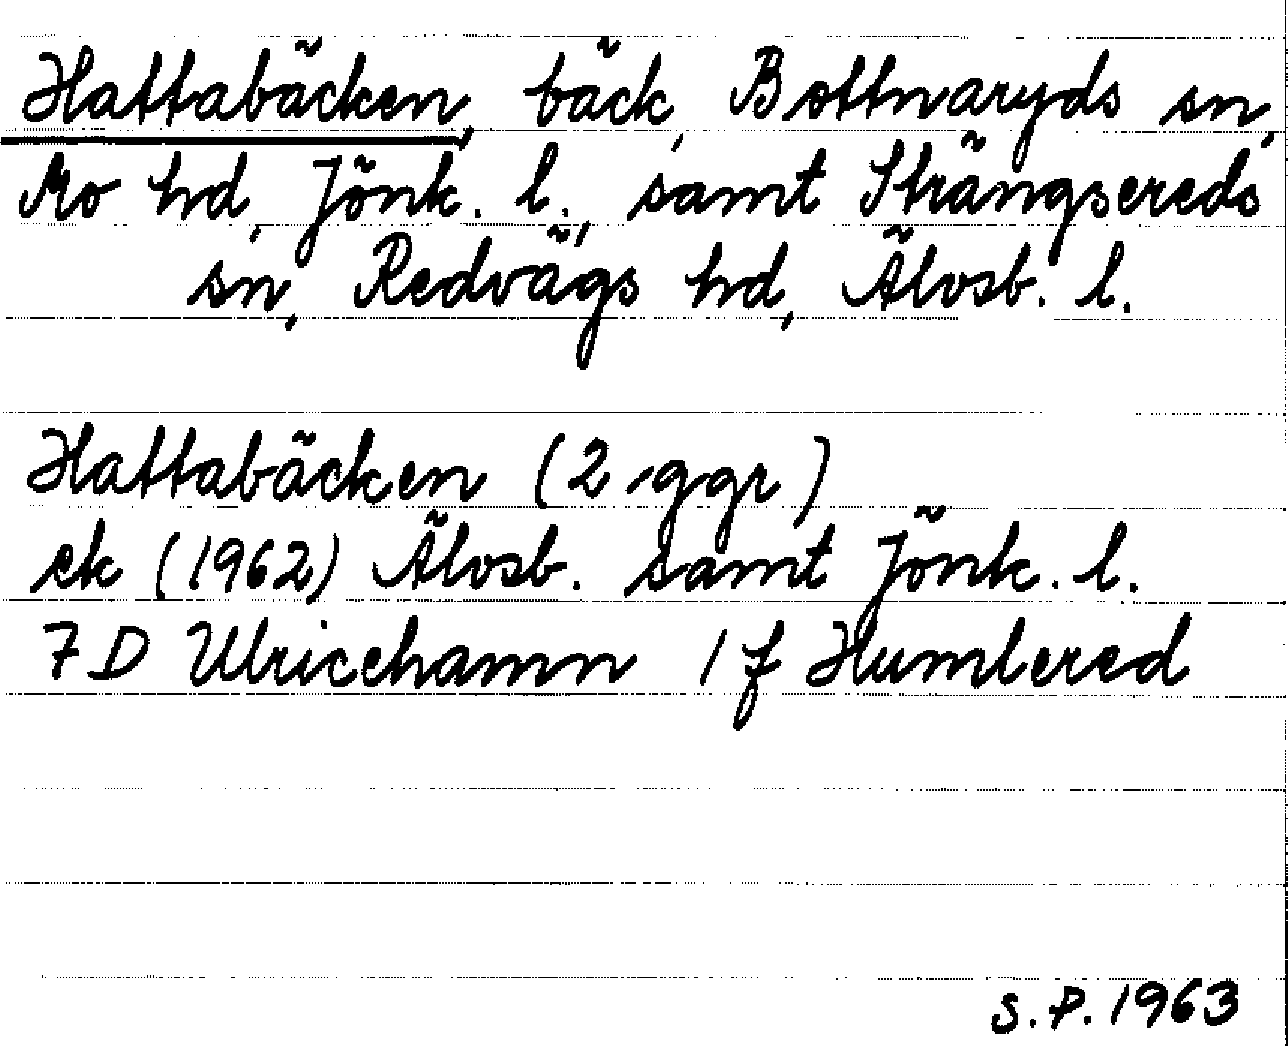 Hattabäcken, bäck, Bottnaryds sn,
Mo hd, Jönk. l., samt Strängsereds
sn, Redvägs hd, Älvsb. l.
Hattabäcken (2 ggr)
ek (1962) Älvsb. samt Jönk. l.
7D Ulricehamn 1f Humlered
S.P. 1963